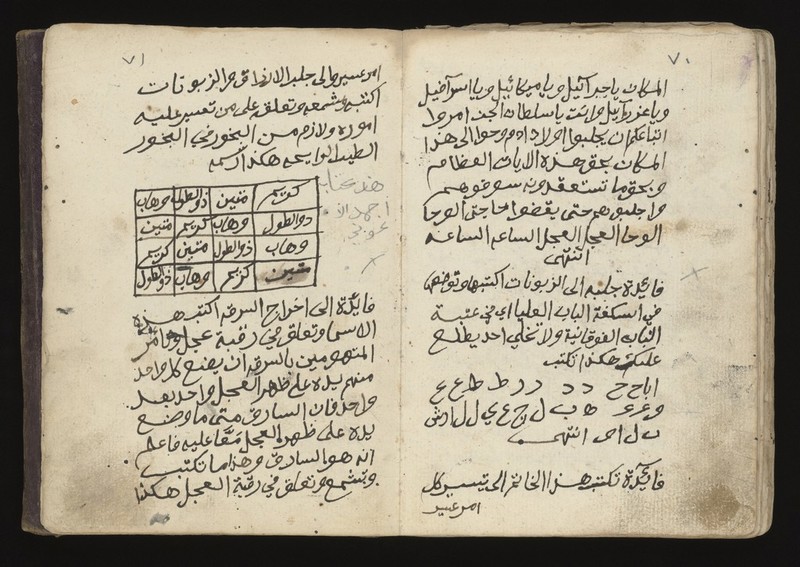 ٧٠
المكان ياجبرآئيل وياميكائيل ويا اسرآفيل
وياعزرآئيل وانت ياسلطان الجن امروا
اتباعكم ان يجلبوا اولاد ادم وحوا الى هذا
المكان بحق هذه الايات العظام
وبحق ما تستعقدونه سوقوهم
واجلبوهم حتى يقضوا حاجتي الوحا
الوحا العجل العجل الساعه الساعه
انتهى
فايدة جلبه الى الزبونات اكتبها وتوضع
في اسكفة الباب العليا اي في عتبة
الباب الفوقانية ولا تخلي احد يطلع
عليك هكذا تكتب
اباح ح د د ر ر ط ط ع ع
وع ع ه ب ل ج ع ي ل ل ادش
ب ل اح انتهى
فايدة تكتب هذا الخاتم الى تيسير كل
امر عسير
٧١
امر عسير والى جلب الارزاق والزبونات
اكتبه وشمعه وتعلق على من تعسر عليه
اموره ولازم من البخور في البخور
الطيب الرايحه هكذا اكسه
كريم متين ذوالطول وهاب
ذوالطول وهاب كريم متين
وهاب ذوالطول متين كريم
متين كريم وهاب ذوالطول
فايدة الى اخراج السرقه اكتب هذه
الاسما وتعلق في رقبة عجل وتامر
المتهومين بالسرقه ان يضع كل واحد
منهم يده على ظهر العجل واحد بعد
واحد فان السارق متى ما وضع
يده على ظهر العجل معا عليه فاعلم
انه هو السارق وهذا ما تكتب
وتشمع وتعلق في رقبة العجل هكذا